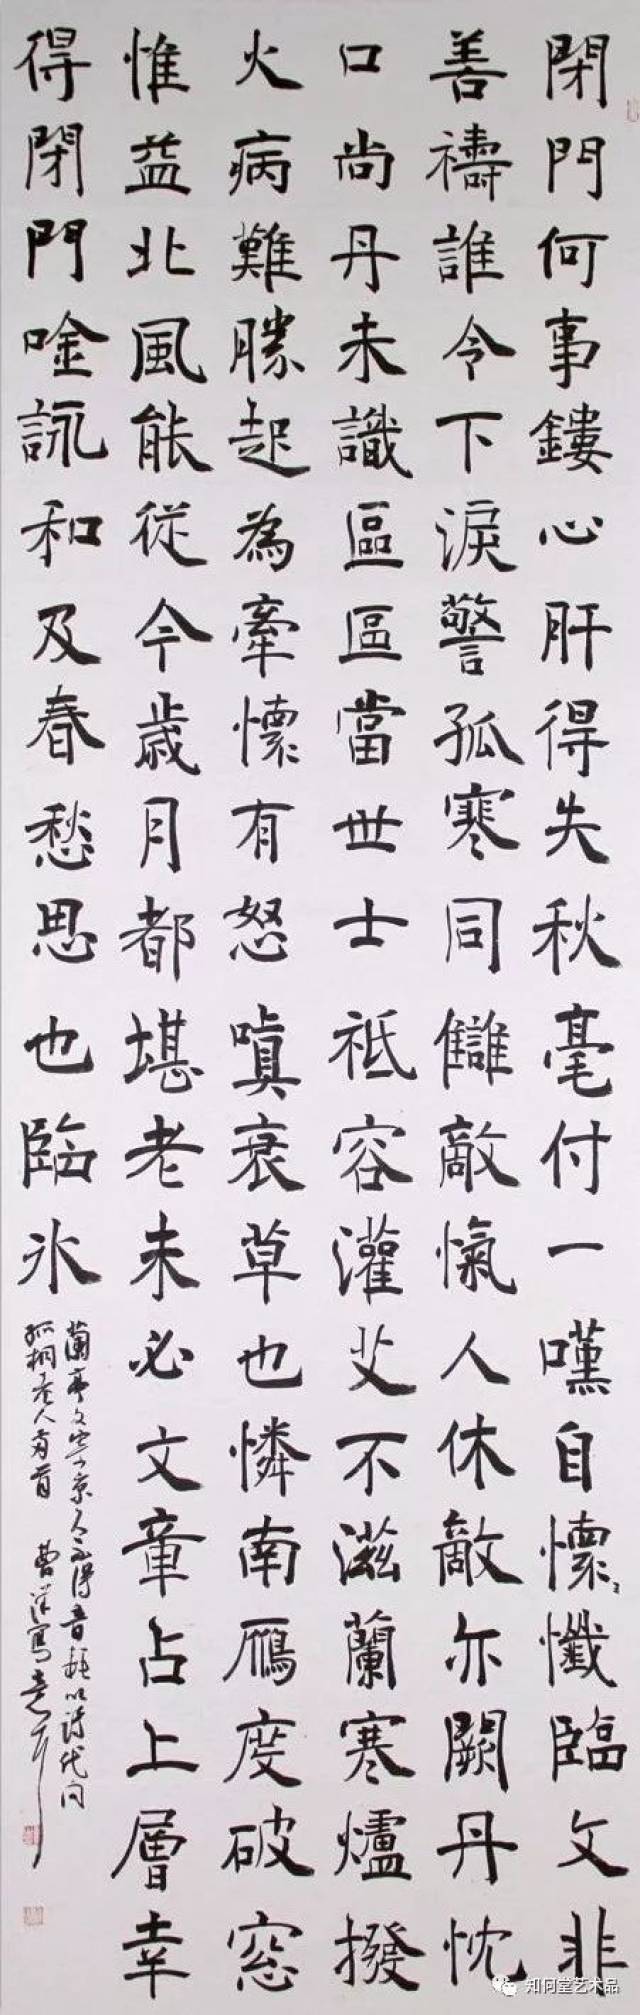 閉門何事鏤心肝得失秋毫付一嘆自懷懺臨文非
善禱誰令下淚警孤寒同讎敵愾人休敵亦闕丹忱
口尚丹未識區區當世士祗容灌艾不滋蘭寒爐撥
火病難勝起為牽懷有怒嗔衰草也憐南鴈度破窓
惟益北風能從今歲月都堪老未必文章占上層幸
得閉門唫詠和及春愁思也臨氷
蘭亭京久不得音耗以詩代問
孤桐老人
知何堂艺术品